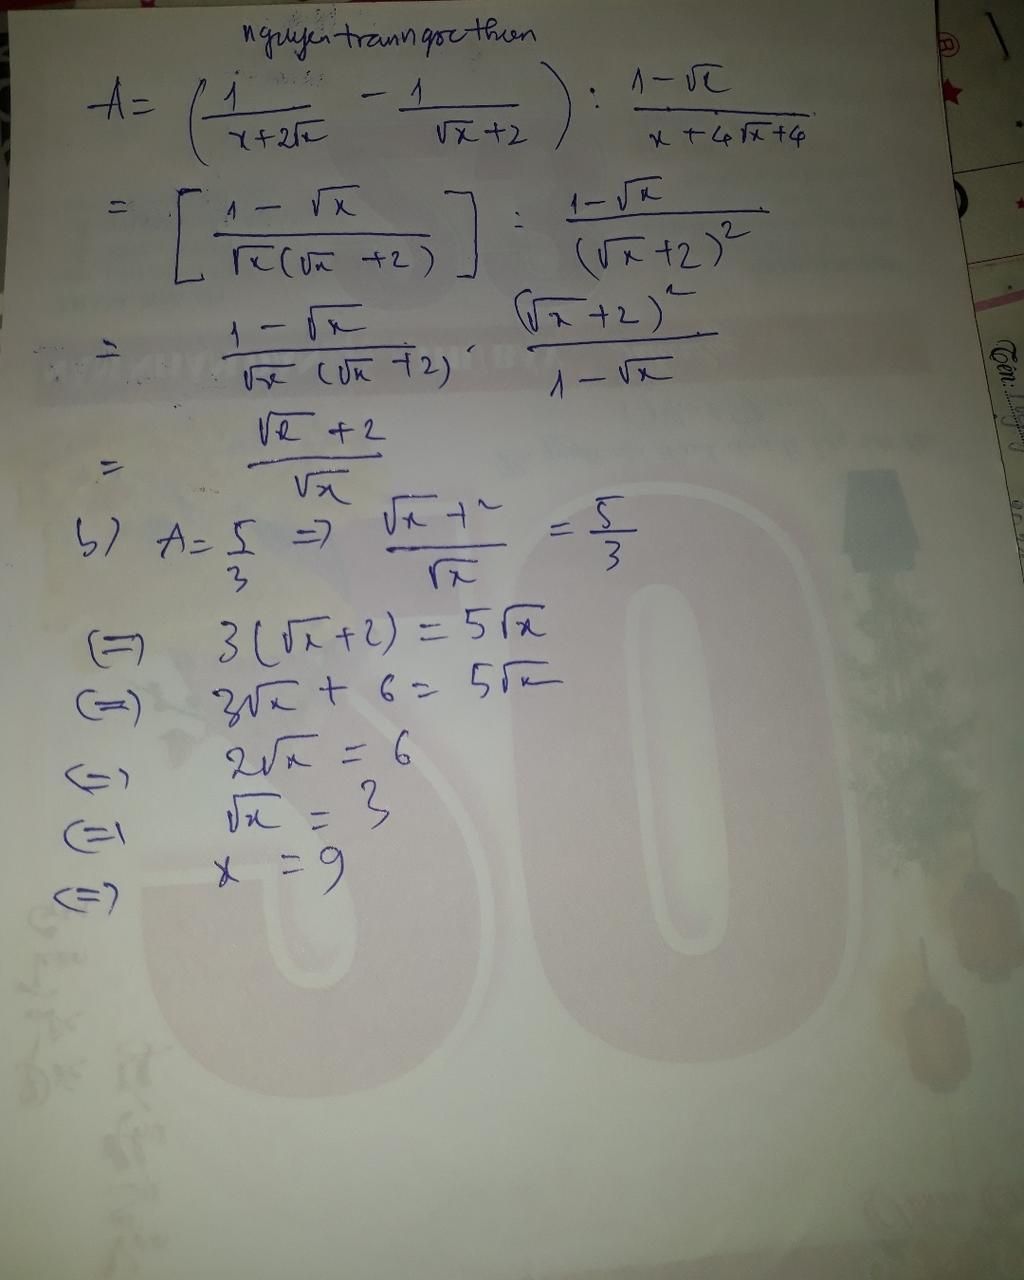 nguyentranngocthien
A = (1/(x+2√x) - 1/(√x+2)) : (1-√x)/(x+4√x+4)
= [(1-√x)/(√x(√x+2))] : (1-√x)/(√x+2)²
= (1-√x)/(√x(√x+2)) . (√x+2)²/(1-√x)
= (√x+2)/√x
b) A = 5/3 => (√x+2)/√x = 5/3
(=) 3(√x+2) = 5√x
(=) 3√x + 6 = 5√x
<=> 2√x = 6
(=) √x = 3
<=> x = 9
Tên:
®